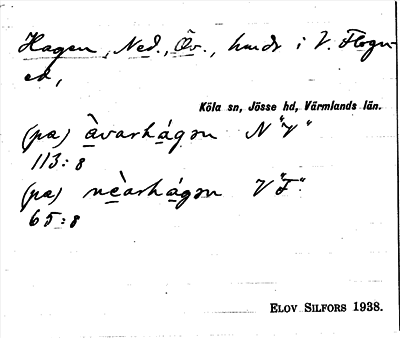 Hagen, Ned., Öv., hmdr i V. Flogn-
ed,
Köla sn, Jösse hd, Värmlands län.
(pa) àvarhágən N "V"
113:8
(pa) nèarhágən V "F".
65:8
ELOV SILFORS 1938.